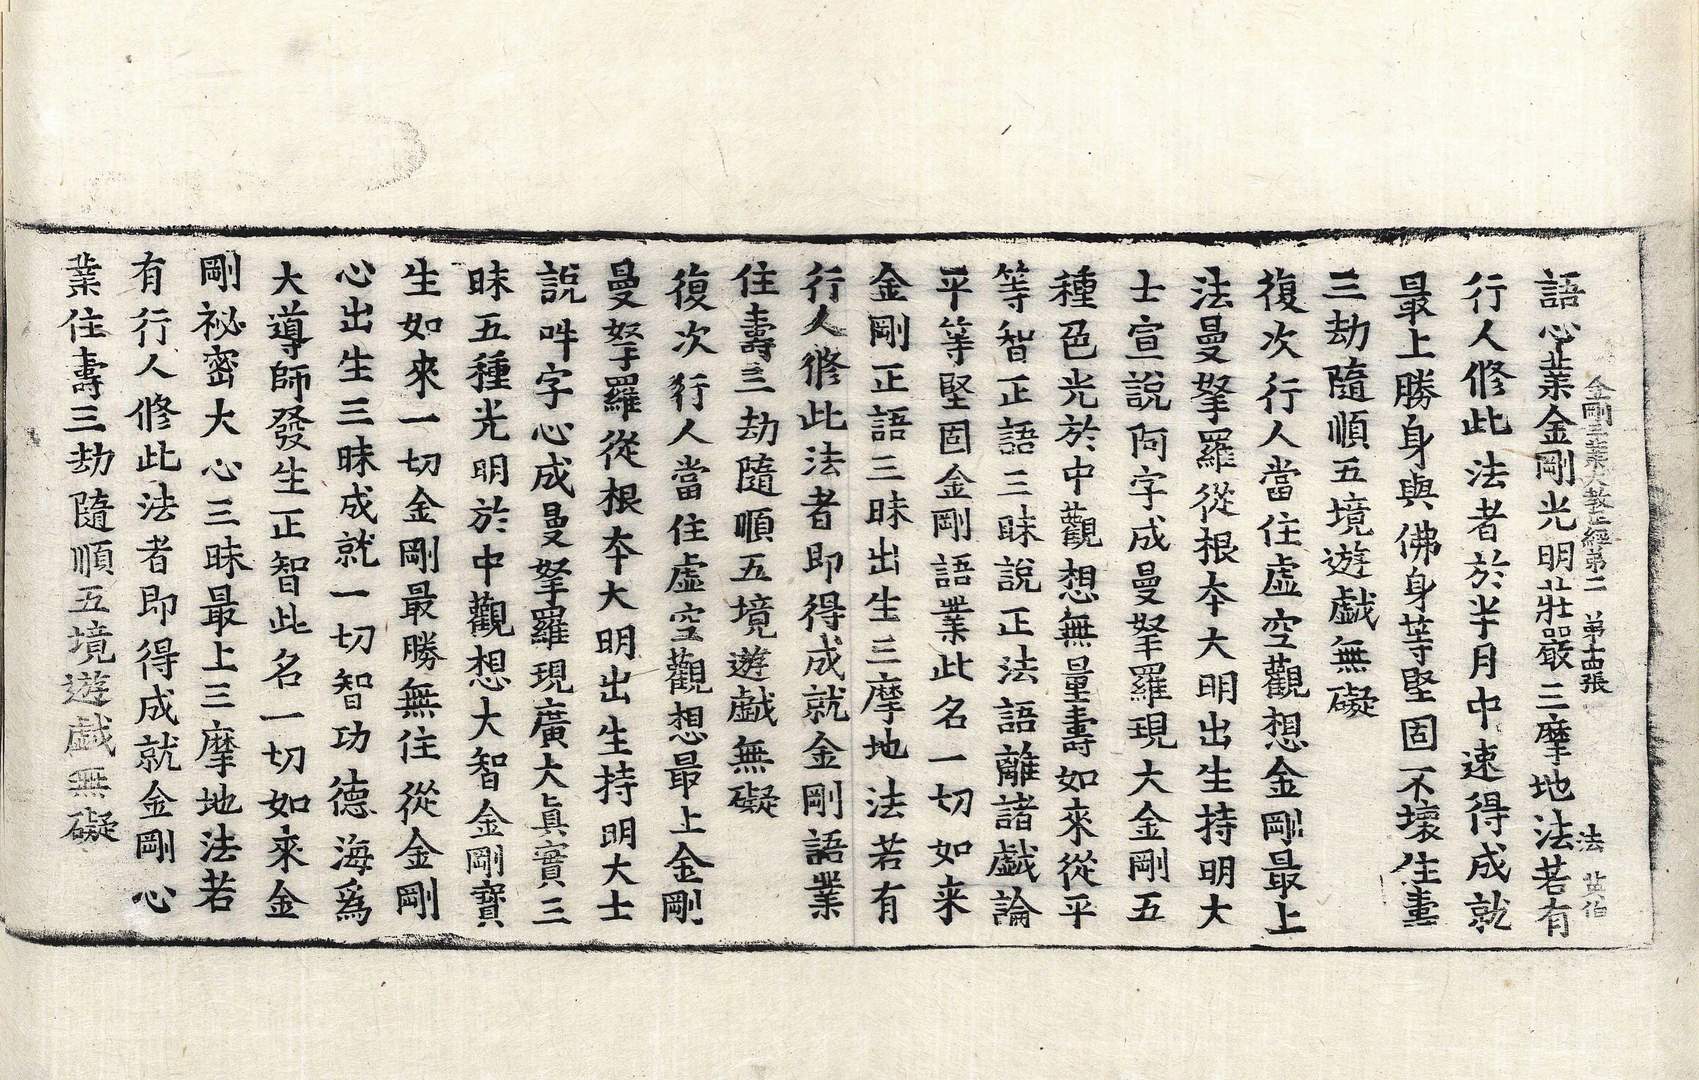 金剛三業大教王經第二 第十四張 法 英伯
語心業金剛光明莊嚴三摩地法若有
行人修此法者於半月中速得成就
最上勝身與佛身等堅固不壞住壽
三劫隨順五境遊戲無礙
復次行人當住虛空觀想金剛最上
法曼拏羅從根本大明出生持明大
士宣說阿字成曼拏羅現大金剛五
種色光於中觀想無量壽如來從平
等智正語三昧說正法語離諸戲論
平等堅固金剛語業此名一切如來
金剛正語三昧出生三摩地法若有
行人修此法者即得成就金剛語業
住壽三劫隨順五境遊戲無礙
復次行人當住虛空觀想最上金剛
曼拏羅從根本大明出生持明大士
說吽字心成曼拏羅現廣大真實三
昧五種光明於中觀想大智金剛寶
生如來一切金剛最勝無住從金剛
心出生三昧成就一切智功德海爲
大導師發生正智此名一切如來金
剛祕密大心三昧最上三摩地法若
有行人修此法者即得成就金剛心
業住壽三劫隨順五境遊戲無礙